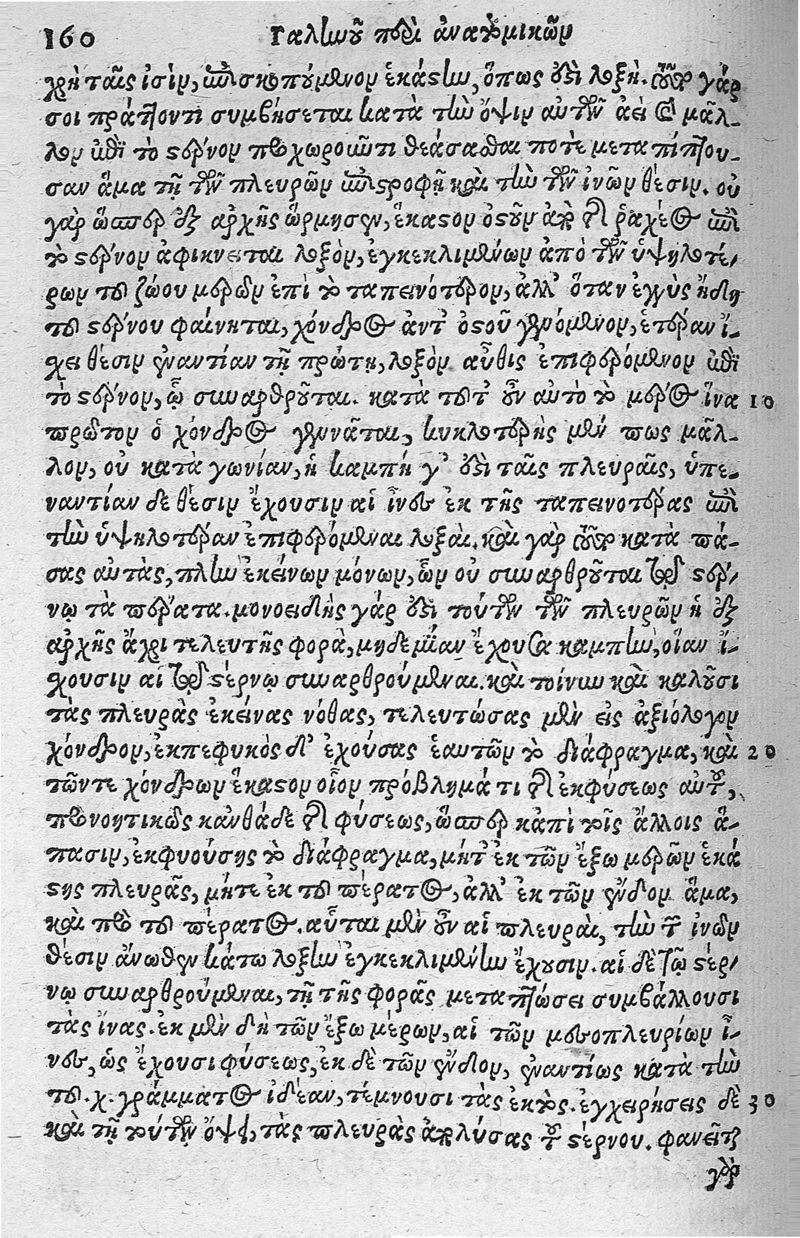 160 Γαληνοῦ περὶ ἀνατομικῶν
χρὴ ταῖς ἰσὶν, ἐπισκοπούμενον ἑκάστην, ὅπως ἐστὶ λοξή. οὕτω γάρ
σοι πράττοντι συμβήσεται κατὰ τὴν ὄψιν αὐτῶν ἀεὶ καὶ μᾶλ-
λον ἐπὶ τὸ στέρνον προχωροῦντι θεάσασθαι ποτὲ μεταπίπτου-
σαν ἅμα τῇ τῶν πλευρῶν ἐπιστροφῇ καὶ τὴν τῶν ἰνῶν θέσιν. οὐ
γὰρ ὥσπερ ἐξ ἀρχῆς ὥρμησεν, ἕκαστον ὀστοῦν ἀπὸ τῆς ῥάχεως ἐπὶ
τὸ στέρνον ἀφικνεῖται λοξὸν, ἐγκεκλιμένων ἀπὸ τῶν ὑψηλοτέ-
ρων τοῦ ζώου μερῶν ἐπὶ τὸ ταπεινότερον, ἀλλ' ὅταν ἐγγὺς ἤδη
τοῦ στέρνου φαίνηται, χόνδρος ἀντ' ὀστοῦ γενόμενον, ἑτέραν ἴ-
σχει θέσιν ἐναντίαν τῇ πρώτῃ, λοξὸν αὖθις ἐπιφερόμενον ἐπὶ
τὸ στέρνον, ᾧ συναρθροῦται. κατὰ τοῦτ' οὖν αὐτὸ τὸ μέρος ἵνα 10
πρῶτον ὁ χόνδρος γεννᾶται, κυκλοτερὴς μέν πως μᾶλ-
λον, οὐ κατὰ γωνίαν, ἡ καμπή γ' ἐστὶ ταῖς πλευραῖς, ὑπε-
ναντίαν δὲ θέσιν ἔχουσιν αἱ ἶνες ἐκ τῆς ταπεινοτέρας ἐπὶ
τὴν ὑψηλοτέραν ἐπιφερόμεναι λοξαὶ. καὶ γὰρ οὕτω κατὰ πά-
σας αὐτὰς, πλὴν ἐκείνων μόνων, ὧν οὐ συναρθροῦται τῷ στέρ-
νῳ τὰ πέρατα. μονοειδὴς γάρ ἐστι τούτων τῶν πλευρῶν ἡ ἐξ
ἀρχῆς ἄχρι τελευτῆς φορὰ, μηδεμίαν ἔχουσα καμπὴν, οἵαν ἴ-
σχουσιν αἱ τῷ στέρνῳ συναρθρούμεναι. καὶ τοίνυν καὶ καλοῦσι
τὰς πλευρὰς ἐκείνας νόθας, τελευτώσας μὲν εἰς ἀξιόλογον
χόνδρον, ἐκπεφυκὸς δ' ἐχούσας ἑαυτῶν τὸ διάφραγμα, καὶ 20
τῶν τε χόνδρων ἕκαστον οἷον πρόβλημά τι τῆς ἐκφύσεως αὐτοῦ,
προνοητικῶς κἀνθάδε τῆς φύσεως, ὥσπερ κἀπὶ τοῖς ἄλλοις ἅ-
πασιν, ἐκφυούσης τὸ διάφραγμα, μήτ' ἐκ τῶν ἔξω μερῶν ἑκά
στης πλευρᾶς, μήτε ἐκ τοῦ πέρατος, ἀλλ' ἐκ τῶν ἔνδον ἅμα,
καὶ πρὸ τοῦ πέρατος. αὗται μὲν οὖν αἱ πλευραὶ, τὴν τῶν ἰνῶν
θέσιν ἄνωθεν κάτω λοξὴν ἐγκεκλιμένην ἔχουσιν. αἱ δὲ τῷ στέρ-
νῳ συναρθρούμεναι, τῇ τῆς φορᾶς μεταπτώσει συμβάλλουσι
τὰς ἶνας. ἐκ μὲν δὴ τῶν ἔξω μέρων, αἱ τῶν μεσοπλευρίων ἶ-
νες, ὡς ἔχουσι φύσεως, ἐκ δὲ τῶν ἔνδον, ἐναντίως κατὰ τὴν
τοῦ .χ. γράμματος ἰδέαν, τέμνουσι τὰς ἐκτός. ἐγχειρήσεις δὲ 30
καὶ τῇ τούτων ὄψει, τὰς πλευρὰς ἀπολύσας τοῦ στέρνου. φανεῖται
γὰρ